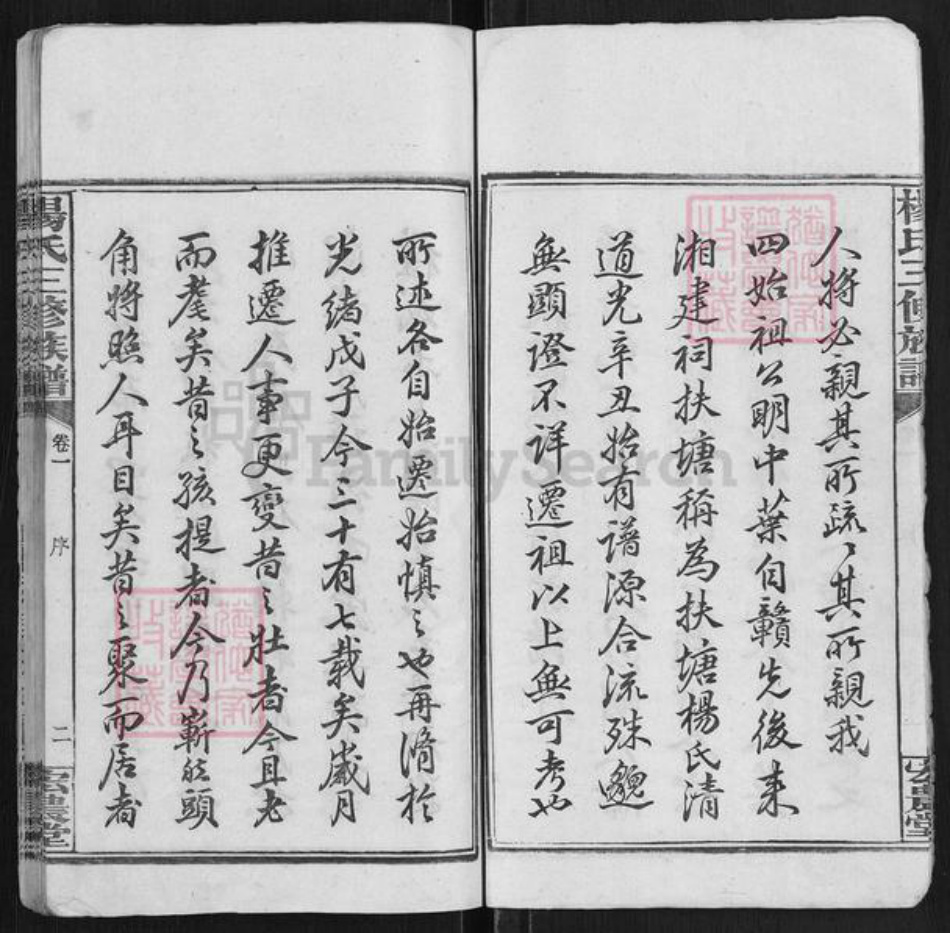 楊氏三修族譜
人將必親其所疏、其所親我
四始祖公明中葉自贛先後来
湘建祠扶塘稱為扶塘楊氏清
道光辛丑始有譜源合流殊邈
無顯證不詳遷祖以上無可考也
宏農堂
所述各自始遷始慎之也再脩於
光緒戊子今三十有七載矣歲月
推遷人事更變昔之壯者今且老
而耄矣昔之孩提者今乃嶄然頭
角將照人耳目矣昔之聚而居者
楊氏三修族譜
卷一
序
二
宏農堂
FamilySearch